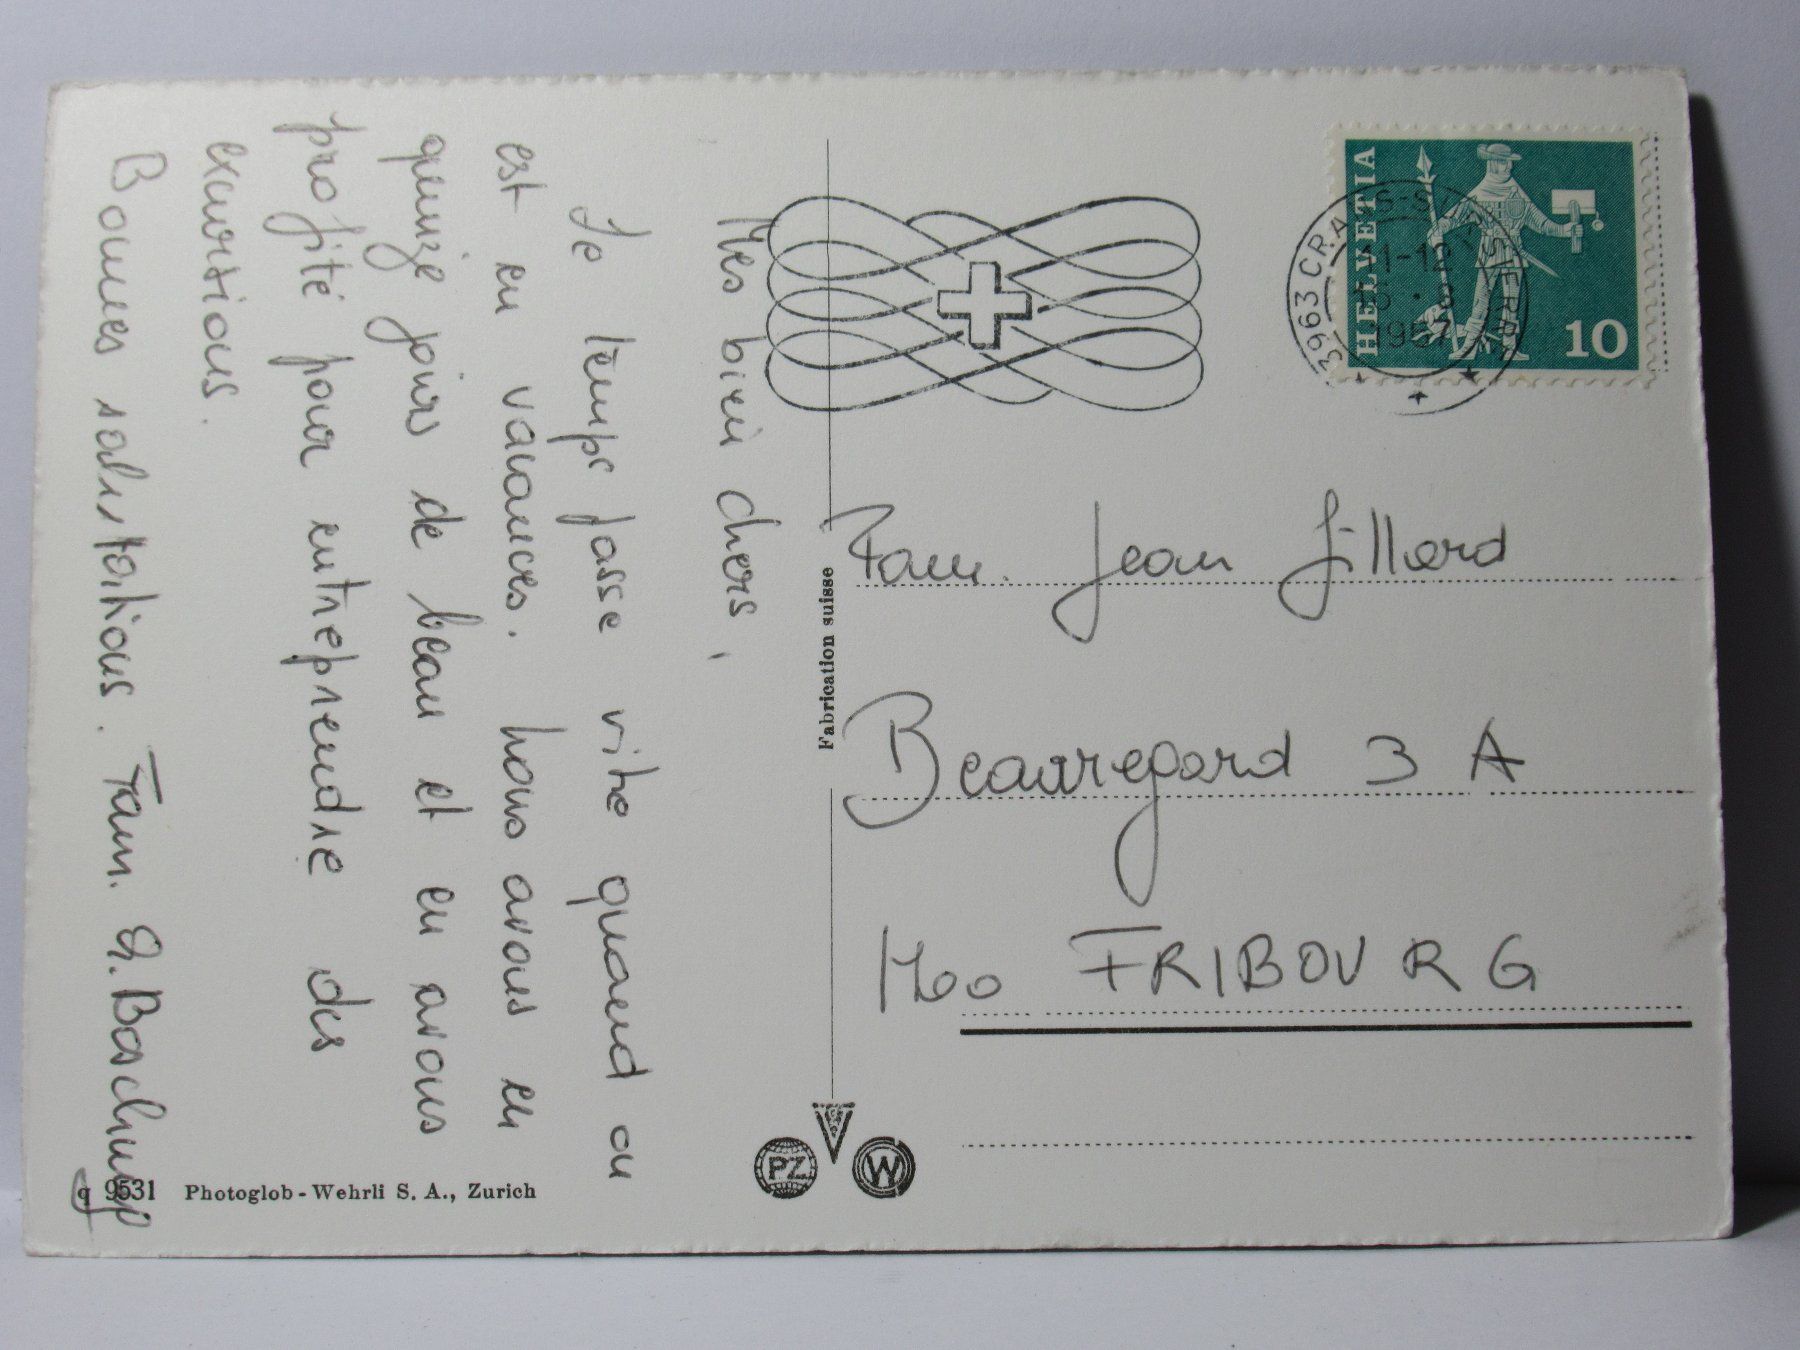 Mes bien chers,
Le temps passe vite quand on
est en vacances. Nous avons eu
quinze jours de beau et en avons
profité pour entreprendre des
excurtions.
Bonnes salutations. Fam.
Fabrication suisse
HELVETIA
10
3963 CRANS-S/SIERRE
11-12
1967
Fam. Jean Jillard
Beauregard 3 A
1700 FRIBOURG
PZ
W
q 9531 Photoglob-Wehrli S. A., Zurich